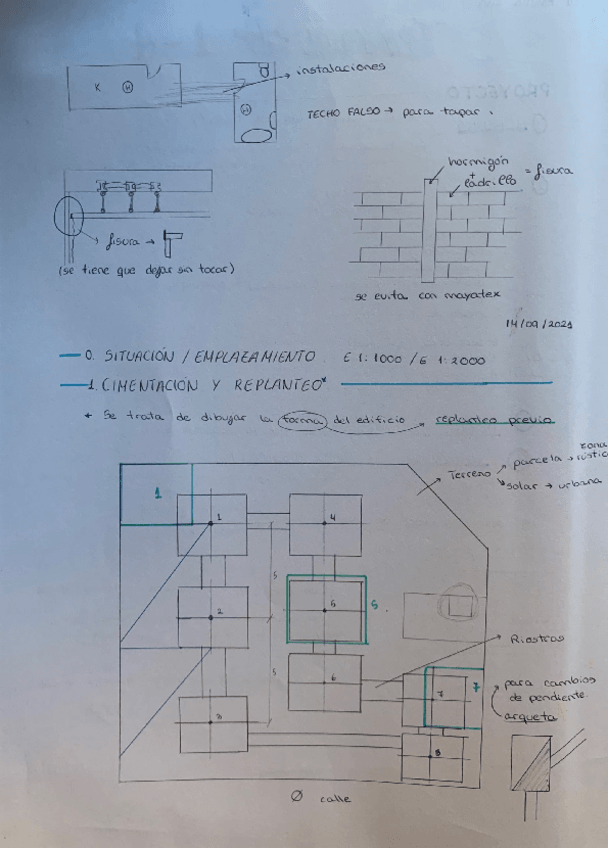 instalaciones
K H
H
TECHO FALSO → para tapar.
hormigón
+
ladrillo = fisura
fisura →
(se tiene que dejar sin tocar)
se evita con mayatex
14/09/2021
0. SITUACIÓN / EMPLAZAMIENTO. E 1:1000 / E 1:2000
1. CIMENTACIÓN Y REPLANTEO*
* Se trata de dibujar la forma del edificio replanteo previo
Terreno
parcela → zona rústica
solar → urbana
1
1
4
5
2
5
5
Riostras
5
6
7
7
para cambios
de pendiente
arqueta
3
8
Ø calle